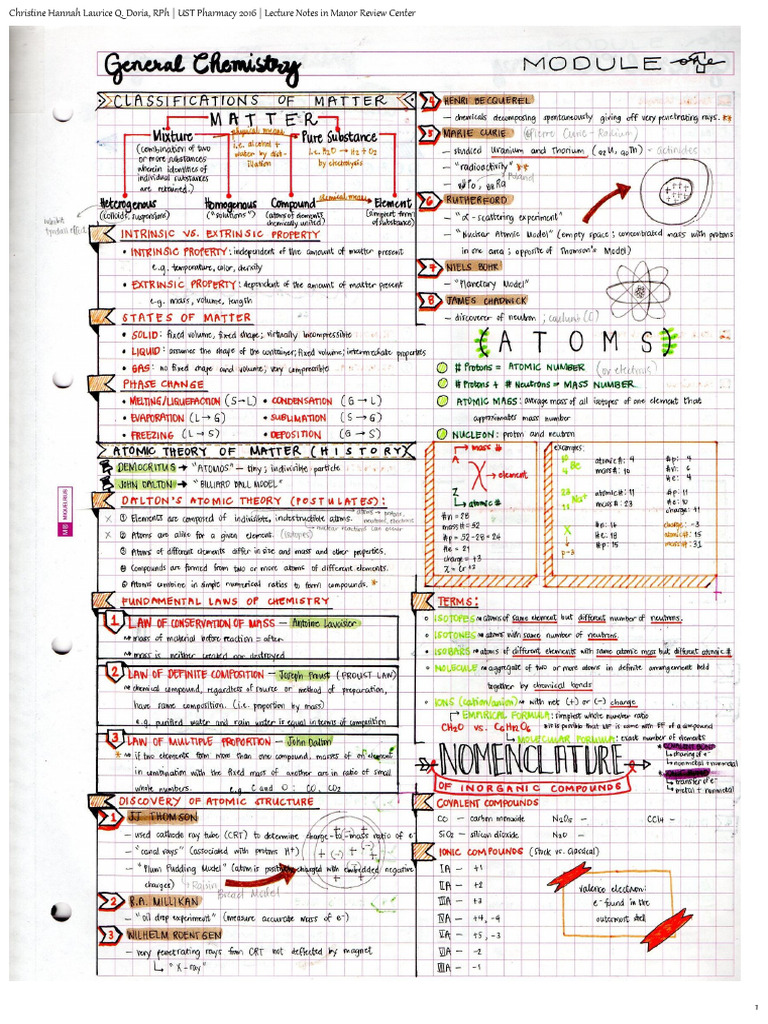 Christine Hannah Laurice Q. Doria, RPh | UST Pharmacy 2016 | Lecture Notes in Manor Review Center
General Chemistry
MODULE one
CLASSIFICATIONS OF MATTER
MATTER
Mixture
(combination of two
or more substances
wherein identities of
individual substances
are retained.)
physical means
i.e. alcohol +
water by dist-
illation
Pure Substance
i.e. H2O → H2 + O2
by electrolysis
Heterogenous
(colloids, suspensions)
Homogenous
("solutions")
Compound
(atoms of elements
chemically united)
chemical means
Element
(simplest form
of substance)
exhibit
tyndall effect
INTRINSIC VS. EXTRINSIC PROPERTY
• INTRINSIC PROPERTY: independent of the amount of matter present
e.g. temperature, color, density
• EXTRINSIC PROPERTY: dependent of the amount of matter present
e.g. mass, volume, length
STATES OF MATTER
• SOLID: fixed volume, fixed shape; virtually incompressible
• LIQUID: assume the shape of the container; fixed volume; intermediate properties
• GAS: no fixed shape and volume; very compressible
PHASE CHANGE
• MELTING/LIQUEFACTION (S→L) • CONDENSATION (G→L)
• EVAPORATION (L→G) • SUBLIMATION (S→G)
• FREEZING (L→S) • DEPOSITION (G→S)
ATOMIC THEORY OF MATTER (HISTORY)
DEMOCRITUS → "ATOMOS" – tiny; indivisible particle
JOHN DALTON → "BILLIARD BALL MODEL"
DALTON'S ATOMIC THEORY (POSTULATES):
X ① Elements are composed of indivisible, indestructible atoms.
atoms → protons,
neutrons, electrons
nuclear reactions can occur
X ② Atoms are alike for a given element. (isotopes)
③ Atoms of different elements differ in size and mass and other properties.
④ Compounds are formed from two or more atoms of different elements.
⑤ Atoms combine in simple numerical ratios to form compounds. *
FUNDAMENTAL LAWS OF CHEMISTRY
1 LAW OF CONSERVATION OF MASS – Antoine Lavoisier
mass of material before reaction = after
mass is neither created nor destroyed
2 LAW OF DEFINITE COMPOSITION – Joseph Proust (PROUST LAW)
chemical compound, regardless of source or method of preparation,
have same composition. (i.e. proportion by mass)
e.g. purified water and rain water is equal in terms of composition
3 LAW OF MULTIPLE PROPORTION – John Dalton
* if two elements form more than one compound, masses of an element
in combination with the fixed mass of another are in ratio of small
whole numbers. e.g. C and O : CO, CO2
DISCOVERY OF ATOMIC STRUCTURE
1 JJ THOMSON
– used cathode ray tube (CRT) to determine charge-to-mass ratio of e-
– "canal rays" (associated with protons H+)
– "Plum Pudding Model" (atom is positively charged with embedded negative
charges) Raisin Bread Model
2 R.A. MILLIKAN
– "oil drop experiment" (measure accurate mass of e-)
3 WILHELM ROENTGEN
– very penetrating rays from CRT not deflected by magnet
"X-ray"
4 HENRI BECQUEREL
– chemicals decomposing spontaneously giving off very penetrating rays. **
5 MARIE CURIE (Pierre Curie - Radium)
– studied Uranium and Thorium (92U, 90Th) - actinides
– "radioactivity" **
– 84Po, 88Ra
6 RUTHERFORD
– "α-scattering experiment"
– "Nuclear Atomic Model" (empty space; concentrated mass with protons
in one area; opposite of Thomson's Model)
7 NIELS BOHR
– "Planetary Model"
8 JAMES CHADWICK
– discoverer of neutron;
(ATOMS)
# Protons = ATOMIC NUMBER (or electrons)
# Protons + # Neutrons = MASS NUMBER
ATOMIC MASS: average mass of all isotopes of one element that
approximates mass number
NUCLEON: proton and neutron
mass #
A
X → element
Z
atomic #
#n = 28
mass# = 52
#p = 52-28 = 24
#e = 21
charge = +3
X = Cr+3
examples:
10
4 Be
atomic#: 4
mass#: 10
#p: 4
#n: 6
#e: 4
23
11 Na+
atomic#: 11
mass#: 23
#p: 11
#e: 10
charge: +1
X
P-3
#n: 16
#e: 18
#p: 15
charge: -3
atomic#: 15
mass#: 31
TERMS:
• ISOTOPES atoms of same element but different number of neutrons.
• ISOTONES atoms with same number of neutrons.
• ISOBARS atoms of different elements with same atomic mass but different atomic #
• MOLECULE aggregate of two or more atoms in definite arrangement held
together by chemical bonds
• IONS (cation/anion) with net (+) or (-) charge
EMPIRICAL FORMULA: simplest whole number ratio
CH2O vs. C6H12O6
it is possible that MF is same with EF of a compound
MOLECULAR FORMULA: exact number of elements
NOMENCLATURE
OF INORGANIC COMPOUNDS
COVALENT BOND
sharing of e-
nonmetal + nonmetal
transfer of e-
metal + nonmetal
COVALENT COMPOUNDS
CO – carbon monoxide N2O5 – CCl4 –
SiO2 – silicon dioxide N2O –
IONIC COMPOUNDS (Stock vs. Classical)
IA – +1
IIA – +2
IIIA – +3
IVA – +4, -4
VA – +5, -3
VIA – -2
VIIA – -1
valence electron:
e- found in the
outermost shell
MIQUELRIUS